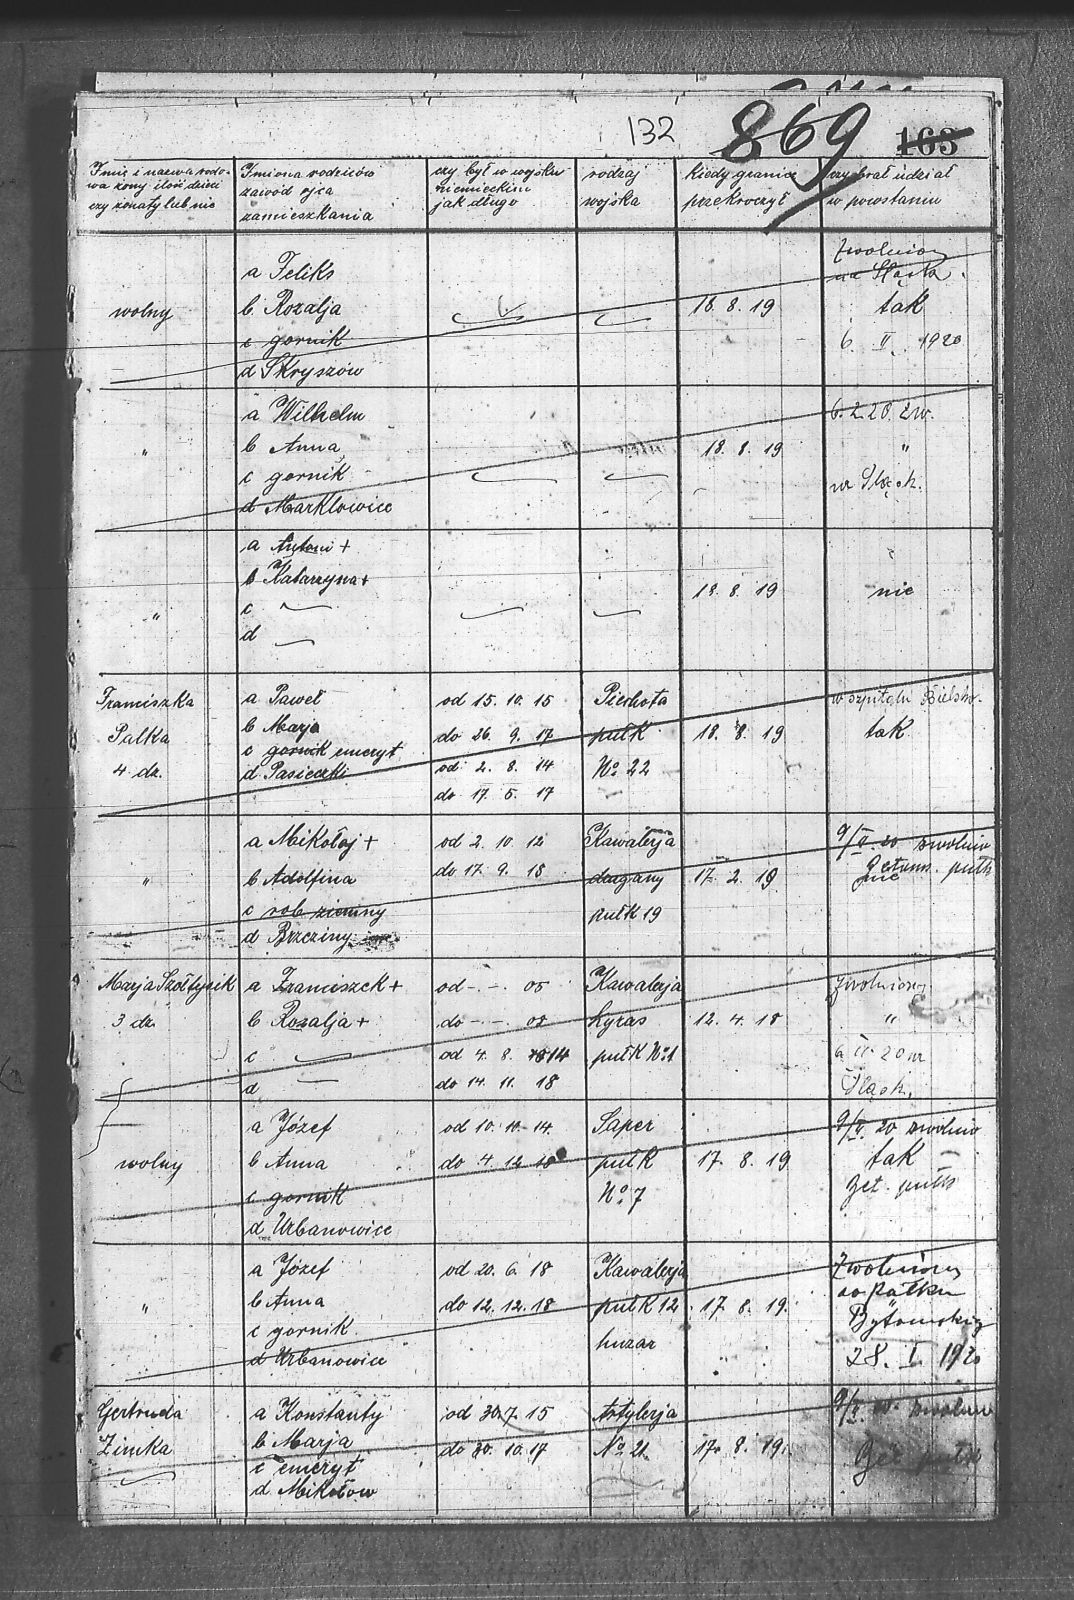 132 869 163
Imię i nazwa rodo-
wa żony ilość dzieci
czy żonaty lub nie
Imiona rodziców
zawód ojca
zamieszkania
czy był w wojsku
niemieckim
jak długo
rodzaj
wojska
kiedy granicę
przekroczył
czy brał udział
w powstaniu
wolny
a Feliks
b Rozalja
c gornik
d Skryszów
18. 8. 19
zwolniony
na Śląsk.
tak
6. II. 1920
"
a Wilhelm
b Anna
c gornik
d Marklowice
18. 8. 19
6. 2. 20. zw.
"
na Śląsk.
"
a Antoni +
b Katarzyna +
c
d
18. 8. 19
nie
Franciszka
Palka
4 dz.
a Paweł
b Marja
c gornik emeryt
d Pasieczki
od 15. 10. 15
do 26. 9. 17
od 2. 8. 14
do 17. 5. 17
Piechota
pułk
No 22
18. 8. 19
w szpitalu Bielsko.
tak
"
a Mikołaj +
b Adolfina
c rob ziemny
d Brzeziny
od 2. 10. 12
do 17. 9. 18
Kawalerja
dragany
pułk 19
17. 2. 19
9/II. 20 zwolnio
nie
Marja Szołtysik
3 dz.
a Franciszek +
b Rozalja +
c
d
od -. -. 05
do -. -. 08
od 4. 8. 14
do 14. 11. 18
Kawalerja
kyras
pułk No 1
12. 4. 18
zwolniony
"
6. II. 20 na
Śląsk.
wolny
a Józef
b Anna
c gornik
d Urbanowice
od 10. 10. 14.
do 4. 12 18
Saper
pułk
No 7
17. 8. 19
9/II. 20 zwolnio
tak
Bet. pułk
"
a Józef
b Anna
c gornik.
d Urbanowice
od 20. 6. 18
do 12. 12. 18
Kawalerja
pułk 12
huzar
17. 8. 19.
Zwolniony
do Pułku
Bytomskieg
28. I. 1920
Gertruda
Zimka
a Konstanty
b Marja
c emeryt
d Mikołow
od 30. 7. 15
do 30. 10. 17
Artylerja
No 21.
17. 8. 19.
9/II. 20. zwolnio
pułk